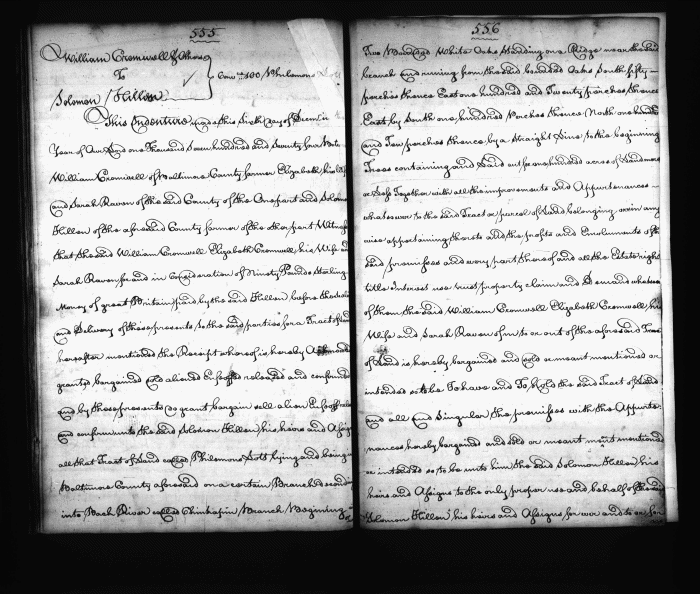 555
William Cromwell & others
To
Conv. 100 Philemons Lott
Solomon Hillen
This Indenture made this Sixth Day of
Year of our Lord one Thousand Seven hundred and Seventy four
William Cromwell of Baltimore County farmer Elizabeth his
and Sarah Raven of the said County of the One part and Solomon
Hillen of the aforesaid County farmer of the other part
that the said William Cromwell Elizabeth Cromwell his Wife and
Sarah Raven for and in Consideration of Ninety Pounds Sterling
Money of great Britain paid by the said Hillen before the
and Delivery of these presents to the said parties for a Tract of Land
hereafter mentioned the Receipt whereof is hereby
granted bargained sold aliened Enfeoffed released and confirmed
and by these presents do grant bargain sell alien Enfeoff
and confirm unto the said Solomon Hillen his heirs and Assigns
all that Tract of Land called Philemons Lott lying and being
Baltimore County aforesaid on a certain Branch
into Back River called Chinkapin Branch Beginning
556
Two Bounded White Oaks Standing on a Ridge near the said
branch and runing from the said bounded Oaks South fifty
perches thence East one hundred and Twenty perches thence
East by South one hundred Perches thence North one hundred
and Two perches thence by a Straight Line to the beginning
Trees containing and Laid out for one hundred acres of Land more
or Less Together with all the improvements and Appurtenances
whatsoever to the said Tract or parcel of Land belonging or in any
wise appertaining thereto and the profits and Emoluments of the
said premisses and every part thereof and all the Estate right
title Interest use trust property claim and Demand whatsoever
of them the said William Cromwell Elizabeth Cromwell his
Wife and Sarah Raven of in to or out of the aforesaid Tract
of Land is hereby bargained and sold or meant mentioned or
intended so to be To have and To Hold the said Tract of Land
and all and Singular the premisses with the Appurte-
nances hereby bargained and sold or meant mentioned
or intended so to be unto him the said Solomon Hillen his
heirs and Assigns to the only proper use and behalf of the said
Solomon Hillen his heirs and Assigns for ever and to or for